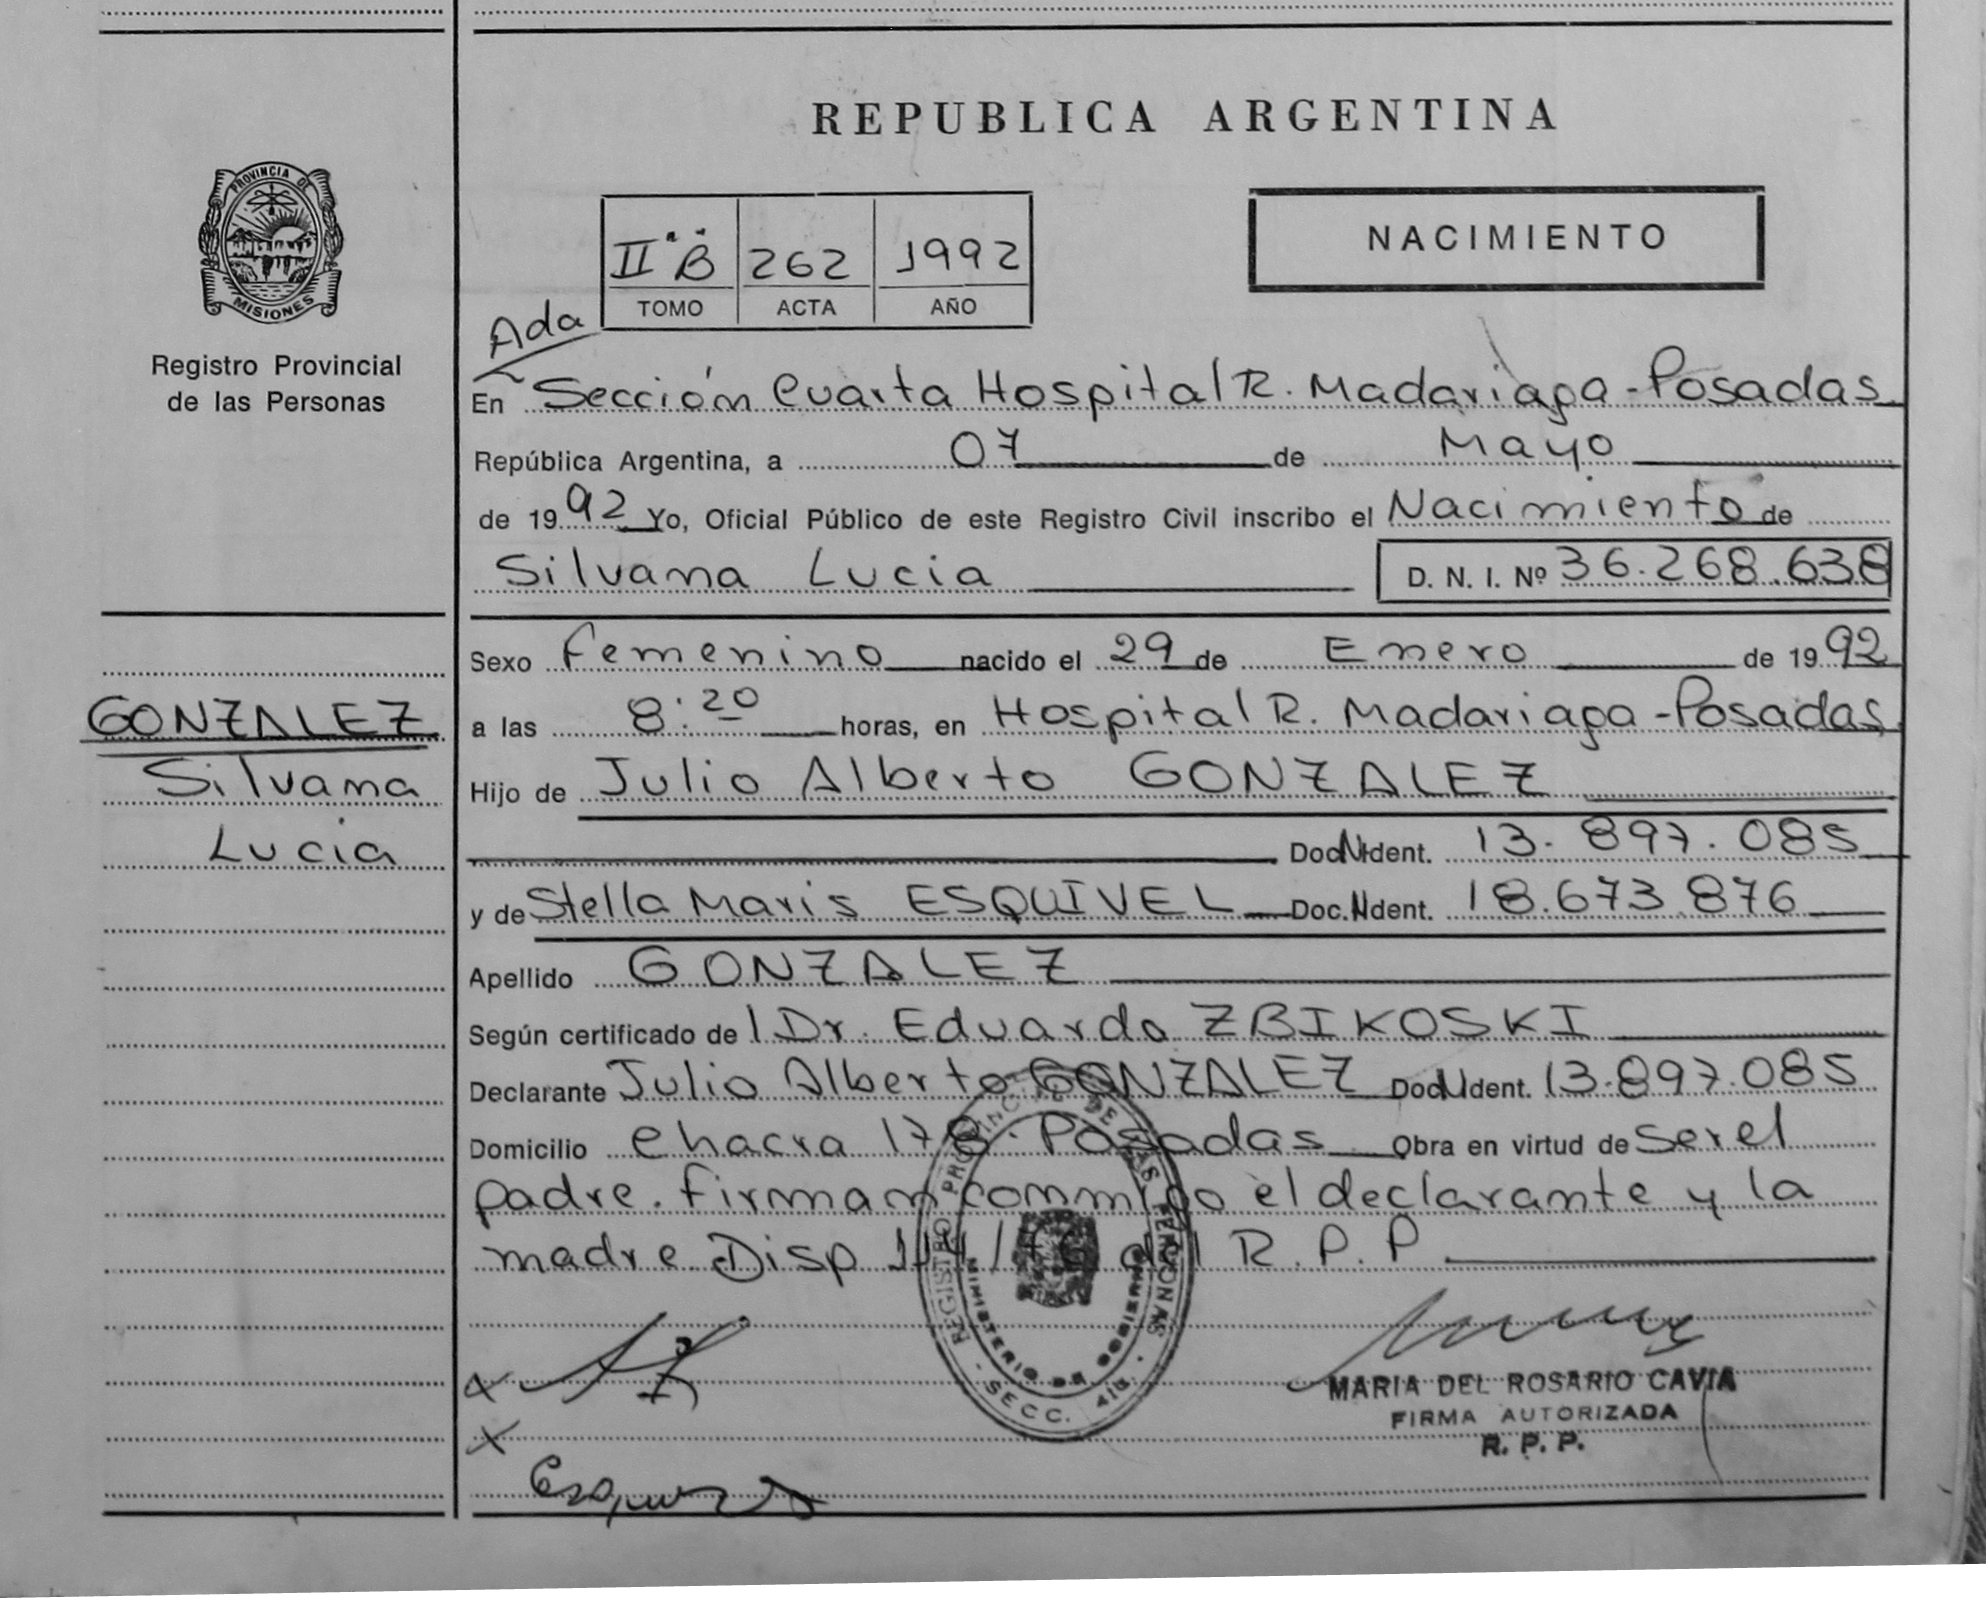 REPUBLICA ARGENTINA
PROVINCIA DE
MISIONES
Registro Provincial
de las Personas
II "B" 262 1992
TOMO ACTA AÑO
NACIMIENTO
Ada
En Sección Cuarta Hospital R. Madariaga - Posadas
República Argentina, a 07 de Mayo
de 1992 Yo, Oficial Público de este Registro Civil inscribo el Nacimiento de
Silvana Lucia D. N. I. Nº 36.268.638
Sexo femenino nacido el 29 de Enero de 1992
a las 8:20 horas, en Hospital R. Madariaga - Posadas
Hijo de Julio Alberto GONZALEZ
Doc. Ident. 13.897.085
y de Stella Maris ESQUIVEL Doc. Ident. 18.673.876
Apellido GONZALEZ
Según certificado de l Dr. Eduardo ZBIKOSKI
Declarante Julio Alberto GONZALEZ Doc. Ident. 13.897.085
Domicilio Chacra 178. Posadas Obra en virtud de ser el
padre. firman conmigo el declarante y la
madre Disp 114/76 del R. P. P
GONZALEZ
Silvana
Lucia
REGISTRO PROVINCIAL DE LAS PERSONAS
MINISTERIO DE GOBIERNO
SECC. 4ta.
MARIA DEL ROSARIO CAVIA
FIRMA AUTORIZADA
R. P. P.